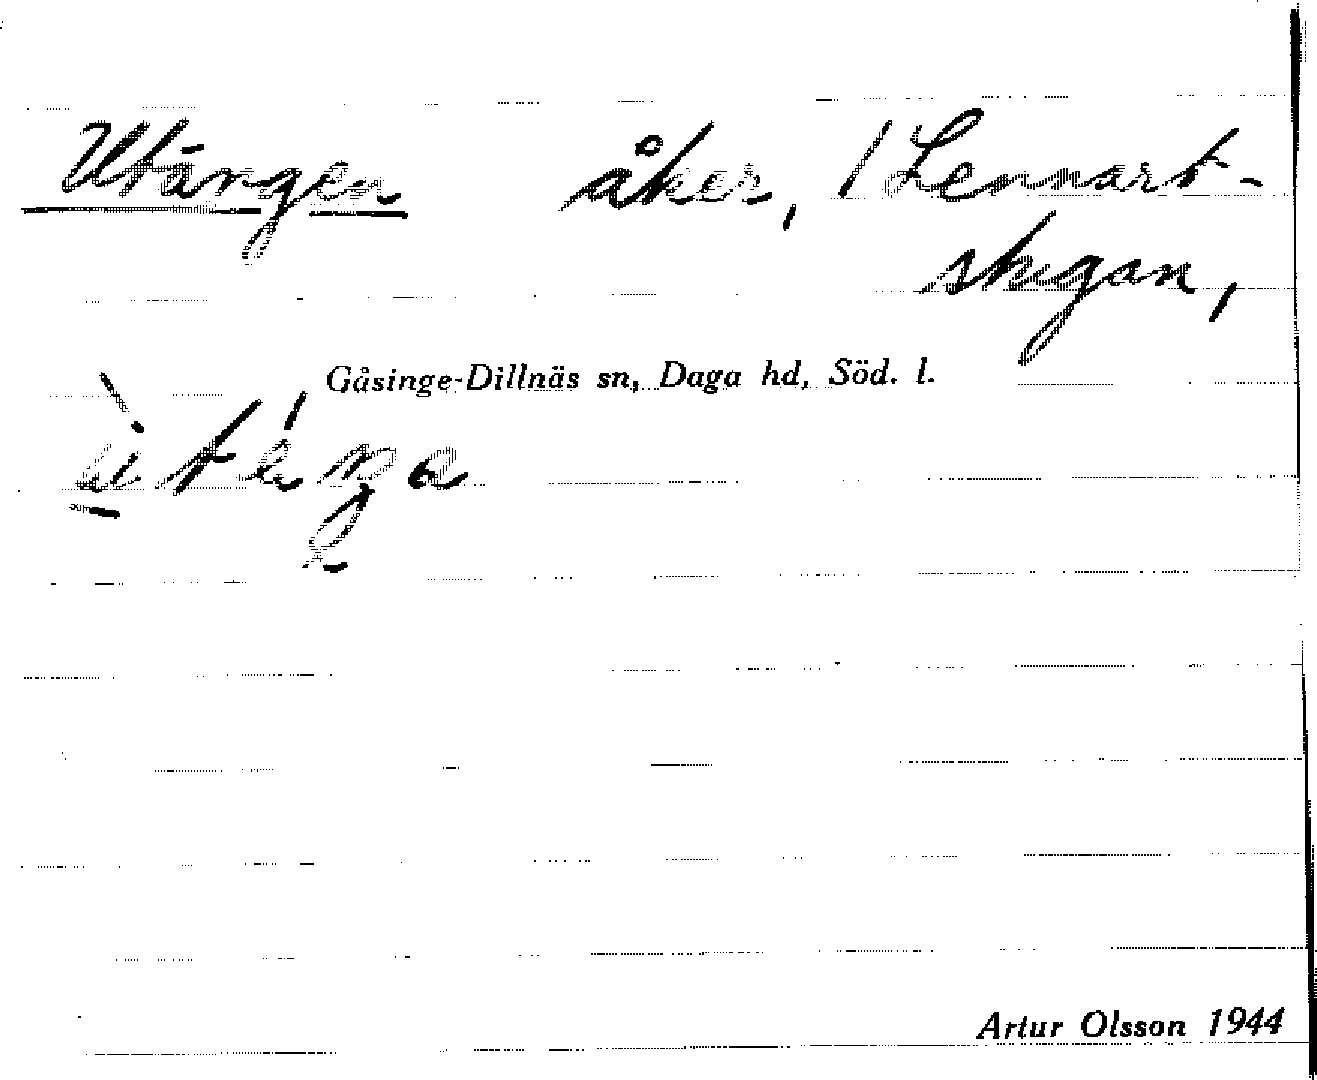 Utängen åker, / Lennart-
stugan,
Gåsinge-Dillnäs sn, Daga hd, Söd. l.
Artur Olsson 1944